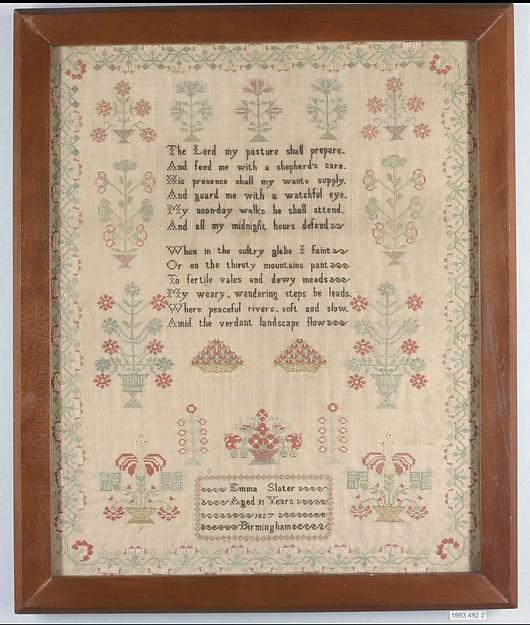 The Lord my pasture shall prepare.
And feed me with a shepherd's care.
His presence shall my wants supply.
And guard me with a watchful eye.
My noon-day walks he shall attend.
And all my midnight hours defend
When in the sultry glebe I faint
Or on the thirsty mountains pant
To fertile vales and dewy meads
My weary, wandering steps he leads
Where peaceful rivers, soft and slow.
Amid the verdant landscape flow
Emma Slater
Aged 11 Years
1827
Birmingham
1993 492 2